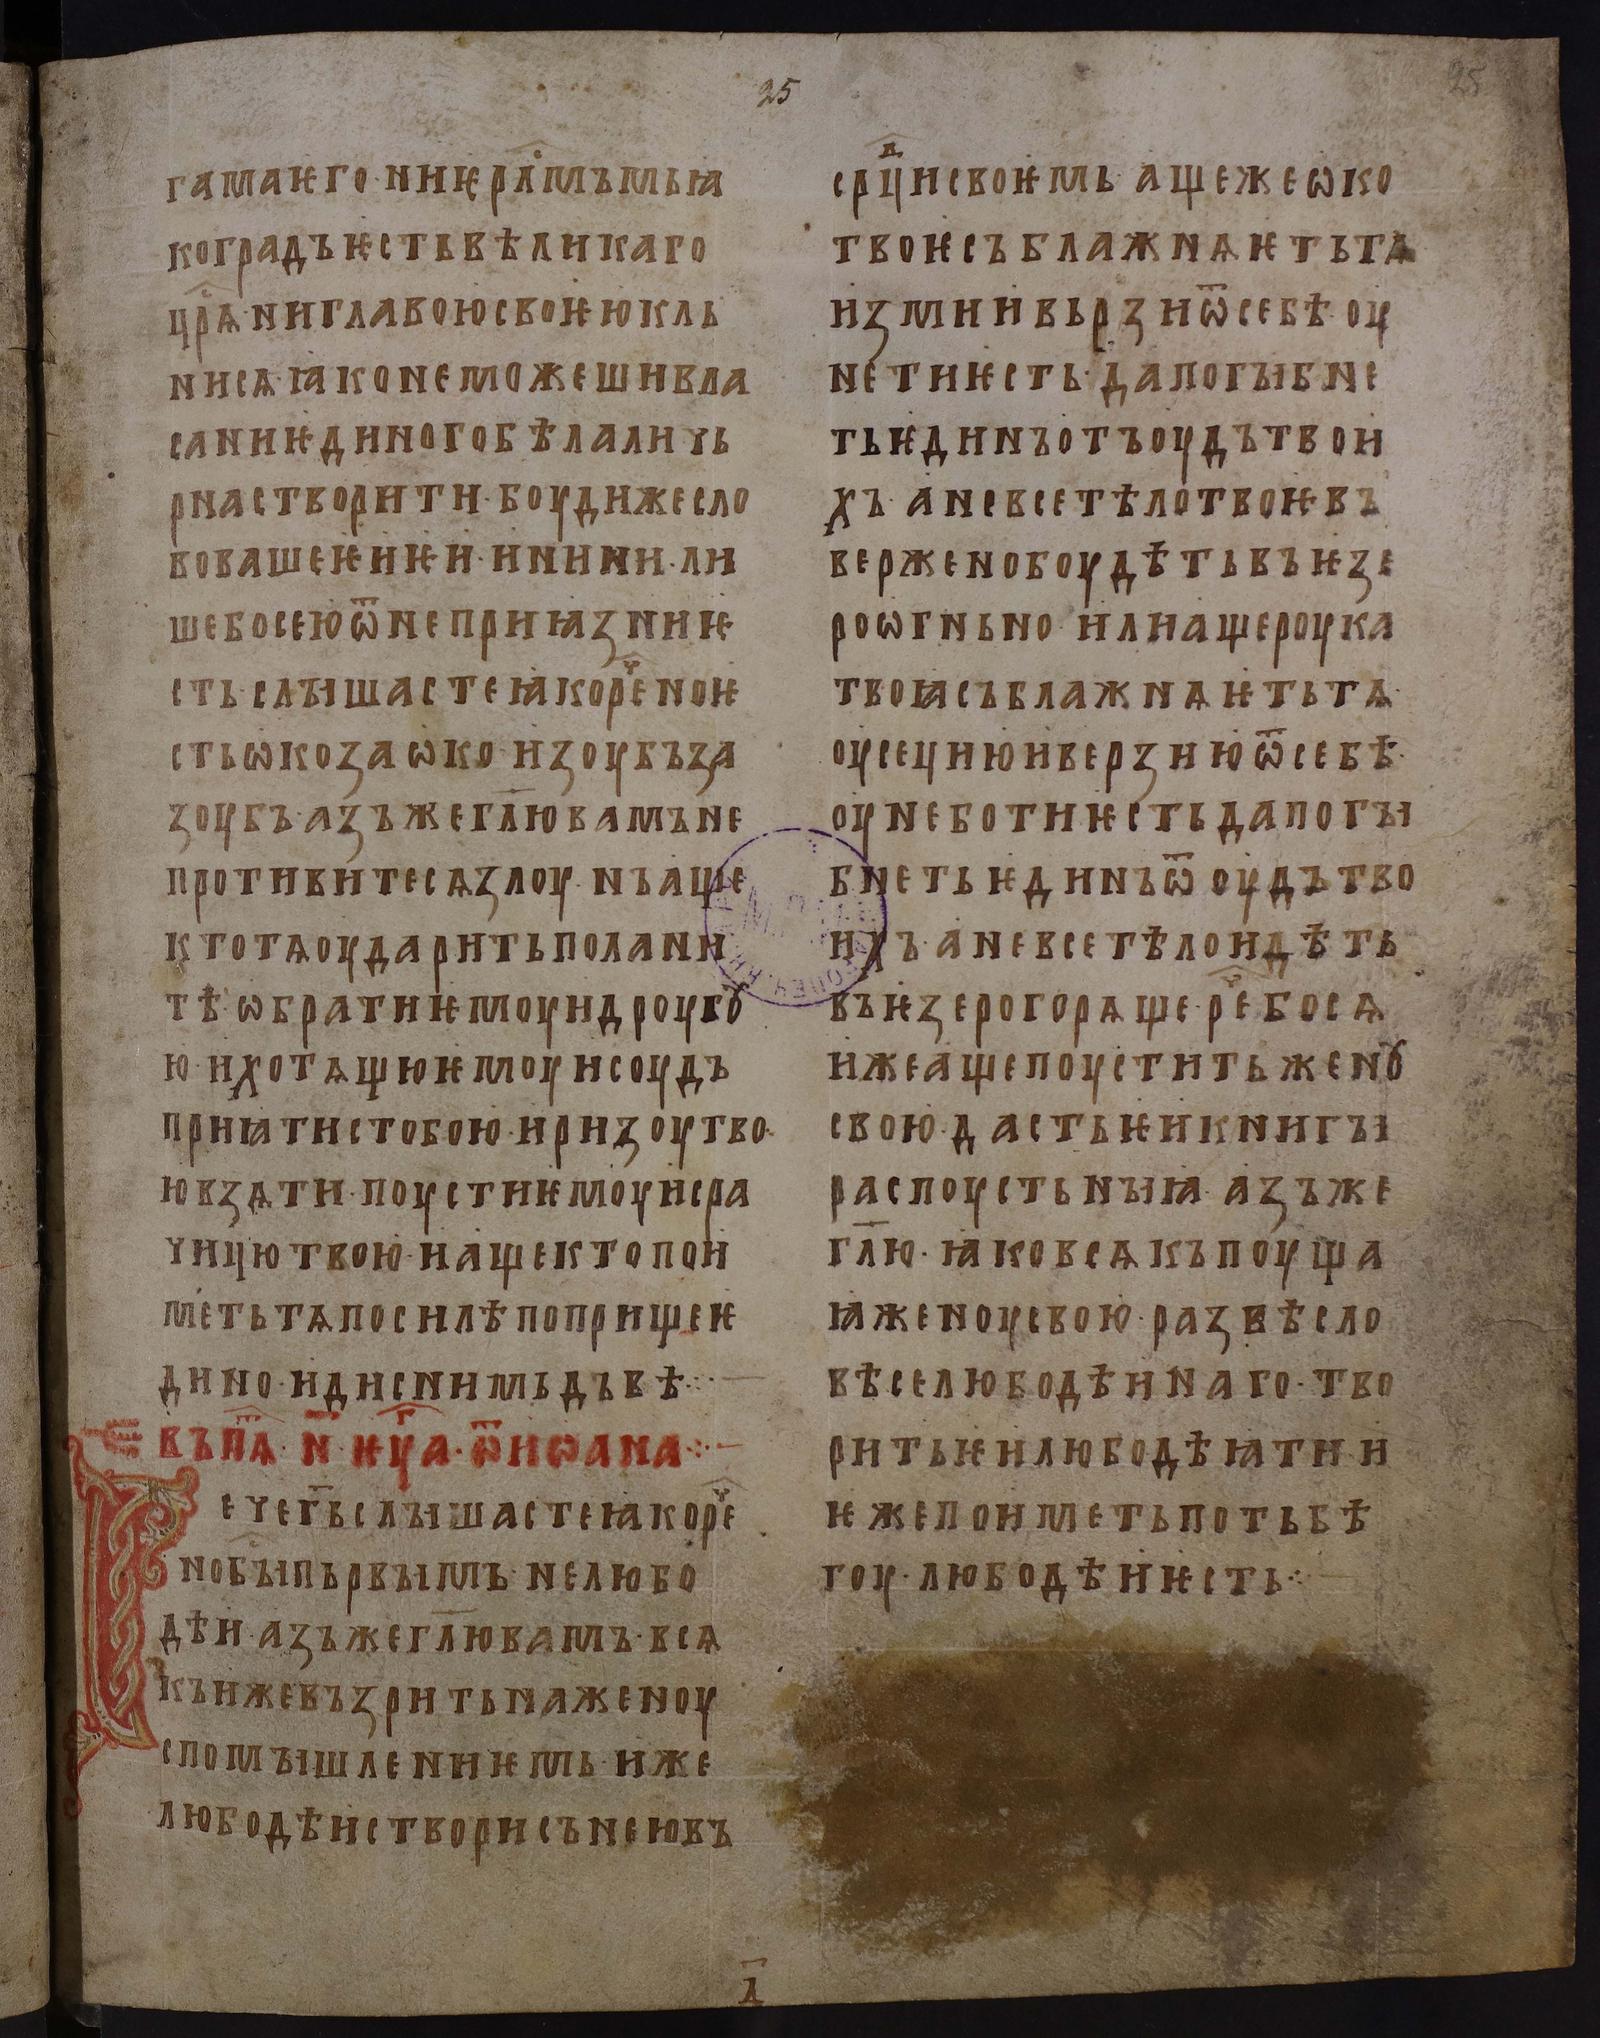 25
25
гамаѥго· ни ѥрⷭ҇лмъмь ꙗ
коградъѥстьвѣликаго
цр҃ѧ· ниглавоюсвоѥюкль
нисѧꙗконеможешивла
саниѥдиногобѣлаличь
рнастворити· боудижесло
вовашеѥиѥи· нини· ли
шебосеюѿнеприꙗзниѥ
сть· слышастеꙗкорⷱ҇еноѥ
стьѡкозаѡко· изоубъза
зоубъ· азъжегл҃ювамъне
противитесѧзлоу· нъаще
ктотѧоударитьполани
тѣ· ѡбратиѥмоуидроугꙋ
ю· ихотѧщюѥмоуисоудъ
приꙗтистобою· иризоутво
ювзѧти· поустиѥмоуисра
чицютвою· иащектопои
метьтѧпосилѣпоприщеѥ
дино· идиснимьдъвѣ·:·
въпⷮѧ· н҃· ѥуⷢ҇а· ѿиѡана·:·
ечегь҃слышастеꙗкорⷱ҇е
нобыпьрвымъ· нелюбо
дѣи· азъжегл҃ювамъ· всѧ
къижевъзритьнаженоу
спомышлениѥмь· иже
любодѣистворисънеювъ
срⷣцисвоѥмь· ащежеѡко
твоѥсъблажнѧѥтьтѧ
измиивьрзиѿсебѣ· оу
нетиѥсть· дапогыбне
тьѥдинъотъоудътвои
хъ· аневсетѣлотвоѥвъ
верженобоудѣтьвъѥзе
роѡгньно· илиащероука
твоꙗсъблажнѧѥтьтѧ·
оусециюиверзиюѿсебѣ·
оунеботиѥстьдапогы
бнетьѥдинъѿоудътво
ихъ· аневсетѣлоидѣть
въѥзерогорѧще· рⷱ҇ебосѧ
ижеащепоуститьженꙋ
свою· дастьѥикнигы
распоустьныꙗ· азъже
гл҃ю· ꙗковсѧкъпоуща
ꙗженоусвою· развѣсло
вѣселюбодѣинаго· тво
ритьѥилюбодѣꙗтии
ѥжепоиметьпотьбѣ
гоу· любодѣиѥсть·:·
д҃